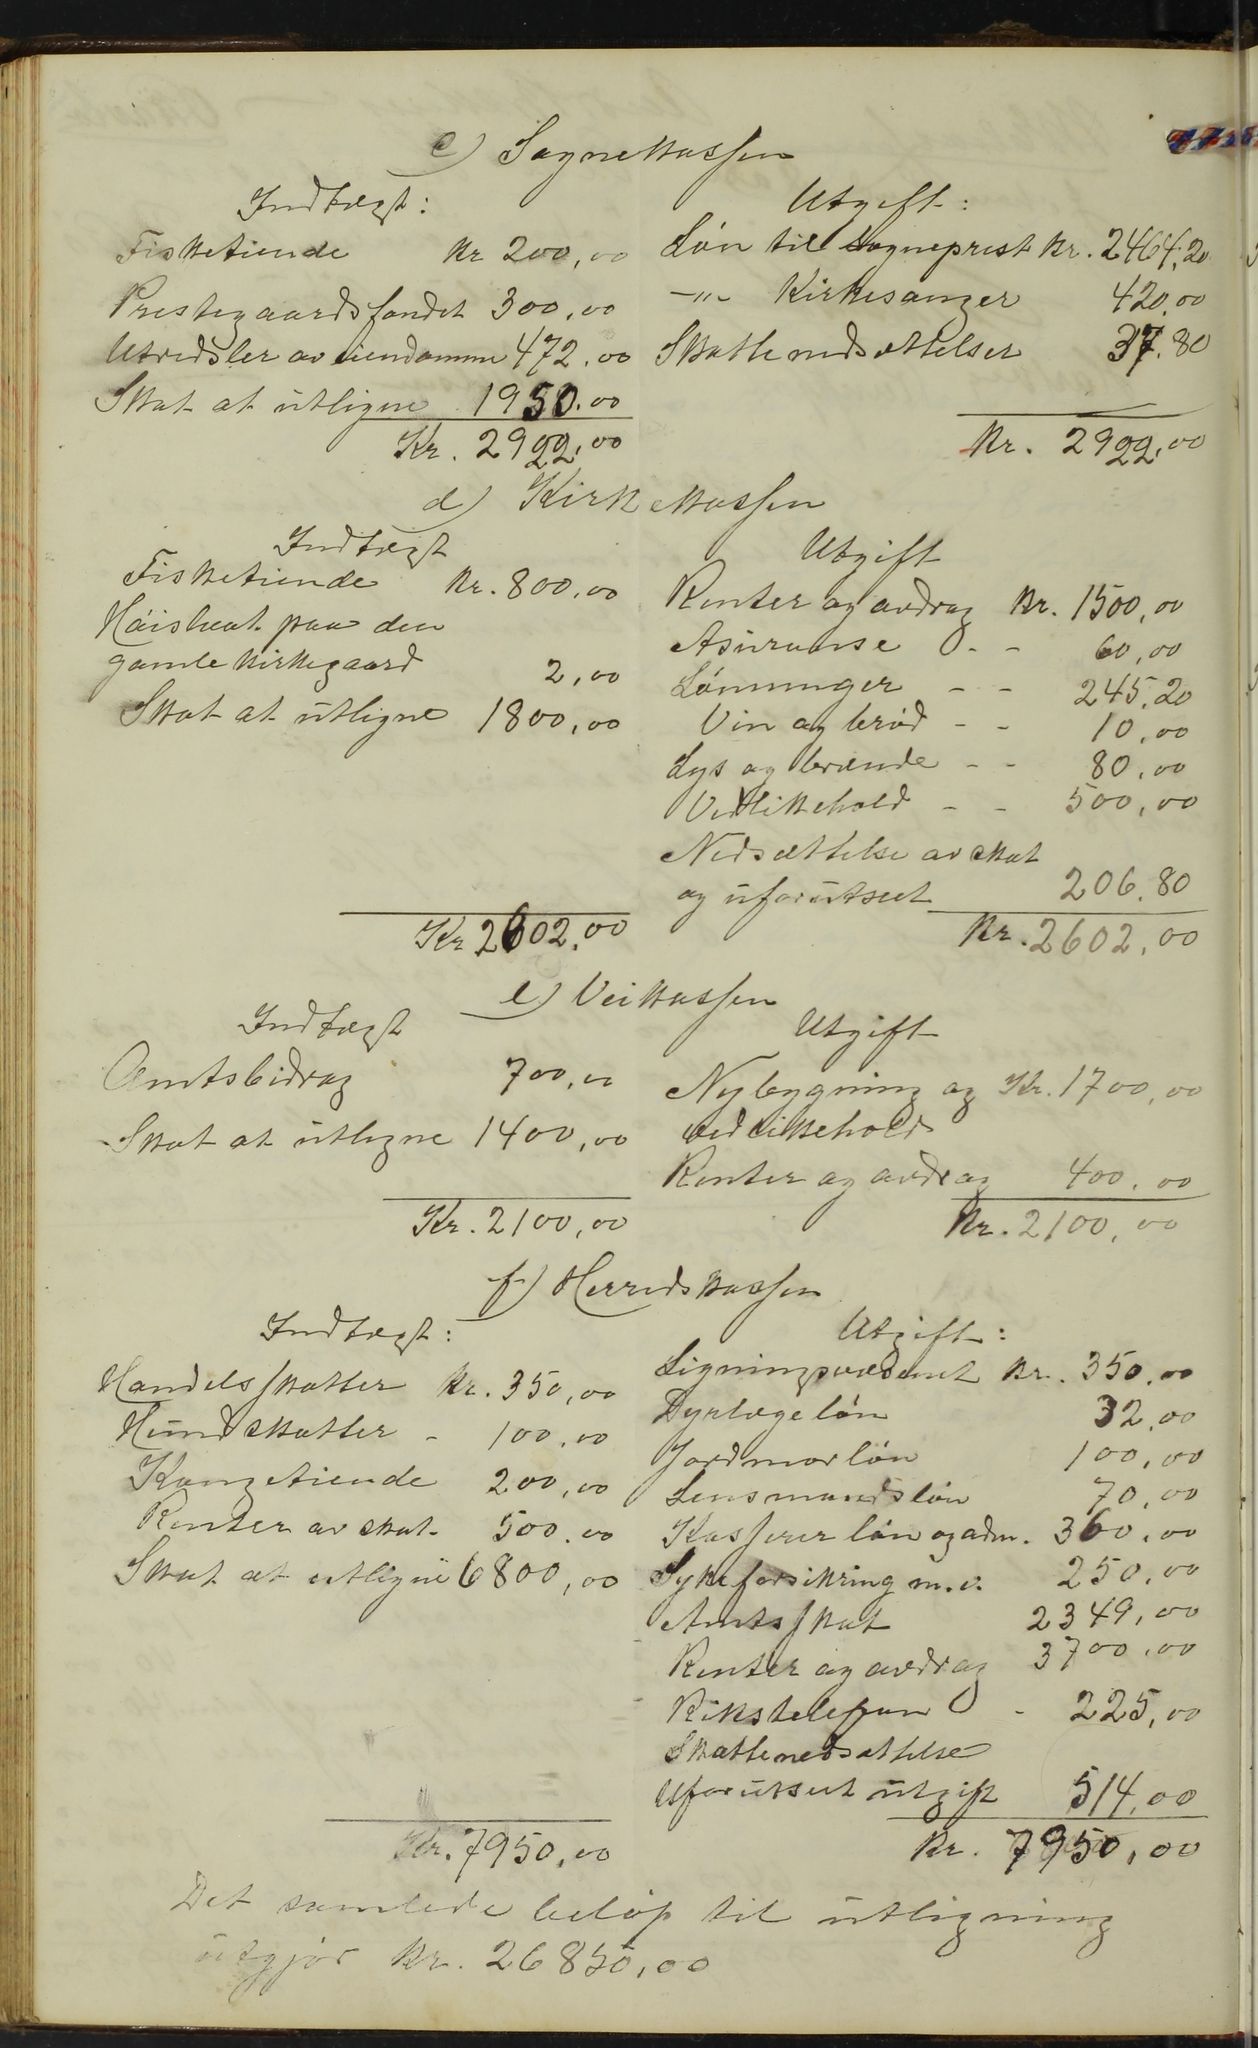 c) Sognekassen
Indtægt:
Fisketiende Kr 200,00
Prestegaardsfondet 300,00
Utredsler av eiendomme 472.00
Skat at utligne 1950.00
Kr. 2922,00
Utgift:
Løn til sogneprest Kr. 2464,20
-"- Kirkesanger 420.00
Skattenedsættelser 37.80
Kr. 2922,00
d) Kirkekassen
Indtægt
Fisketiende Kr. 800,00
Høislaat paa den
gamle Kirkegaard 2,00
Skat at utligne 1800,00
Kr 2602,00
Utgift
Renter og avdrag Kr. 1500,00
Asuranse - - 60,00
Lønninger - - 245,20
Vin og brød - - 10,00
Lys og brænde - - 80,00
Vedlikehold - - 500,00
Nedsættelse av skat
og uforutseet 206.80
Kr. 2602,00
e) Veikassen
Indtægt
Amtsbidrag 700,00
Skat at utligne 1400,00
Kr. 2100,00
Utgift
Nybygning og Kr. 1700,00
vedlikehold
Renter og avdrag 400,00
Kr. 2100,00
f) Herredskassen
Indtægt:
Handelsskatter Kr. 350,00
Hundskatter - 100,00
Kongetiende 200,00
Renter av skat 500.00
Skat at utligne 6800,00
Kr. 7950,00
Utgift:
Ligningsvæsenet Kr. 350,00
Dyrlægeløn 32,00
Jordmorløn 100,00
Lensmandsløn 70,00
Kasserer løn og adm. 360,00
Sykeforsikring m.v. 250,00
Amtsskat 2349,00
Renter og avdrag 3700,00
Rikstelefon - 225,00
Skattenedsættelse
Uforutseet utgift 514,00
Kr. 7950,00
Det samlede beløp til utligning
utgjør Kr. 26850,00